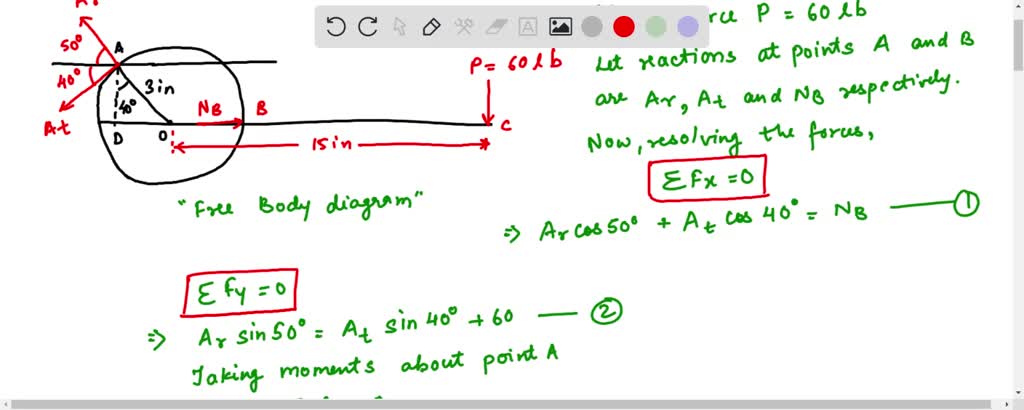 50°
A
40°
3in
P = 60 lb
40°
NB
B
At
D
O
C
15in
"Free Body diagram"
P = 60 lb
Let reactions at points A and B
are Ar, At and NB respectively.
Now, resolving the forces,
ΣFx = 0
⇒ Ar cos 50° + At cos 40° = NB —— ①
ΣFy = 0
⇒ Ar sin 50° = At sin 40° + 60 —— ②
Taking moments about point A